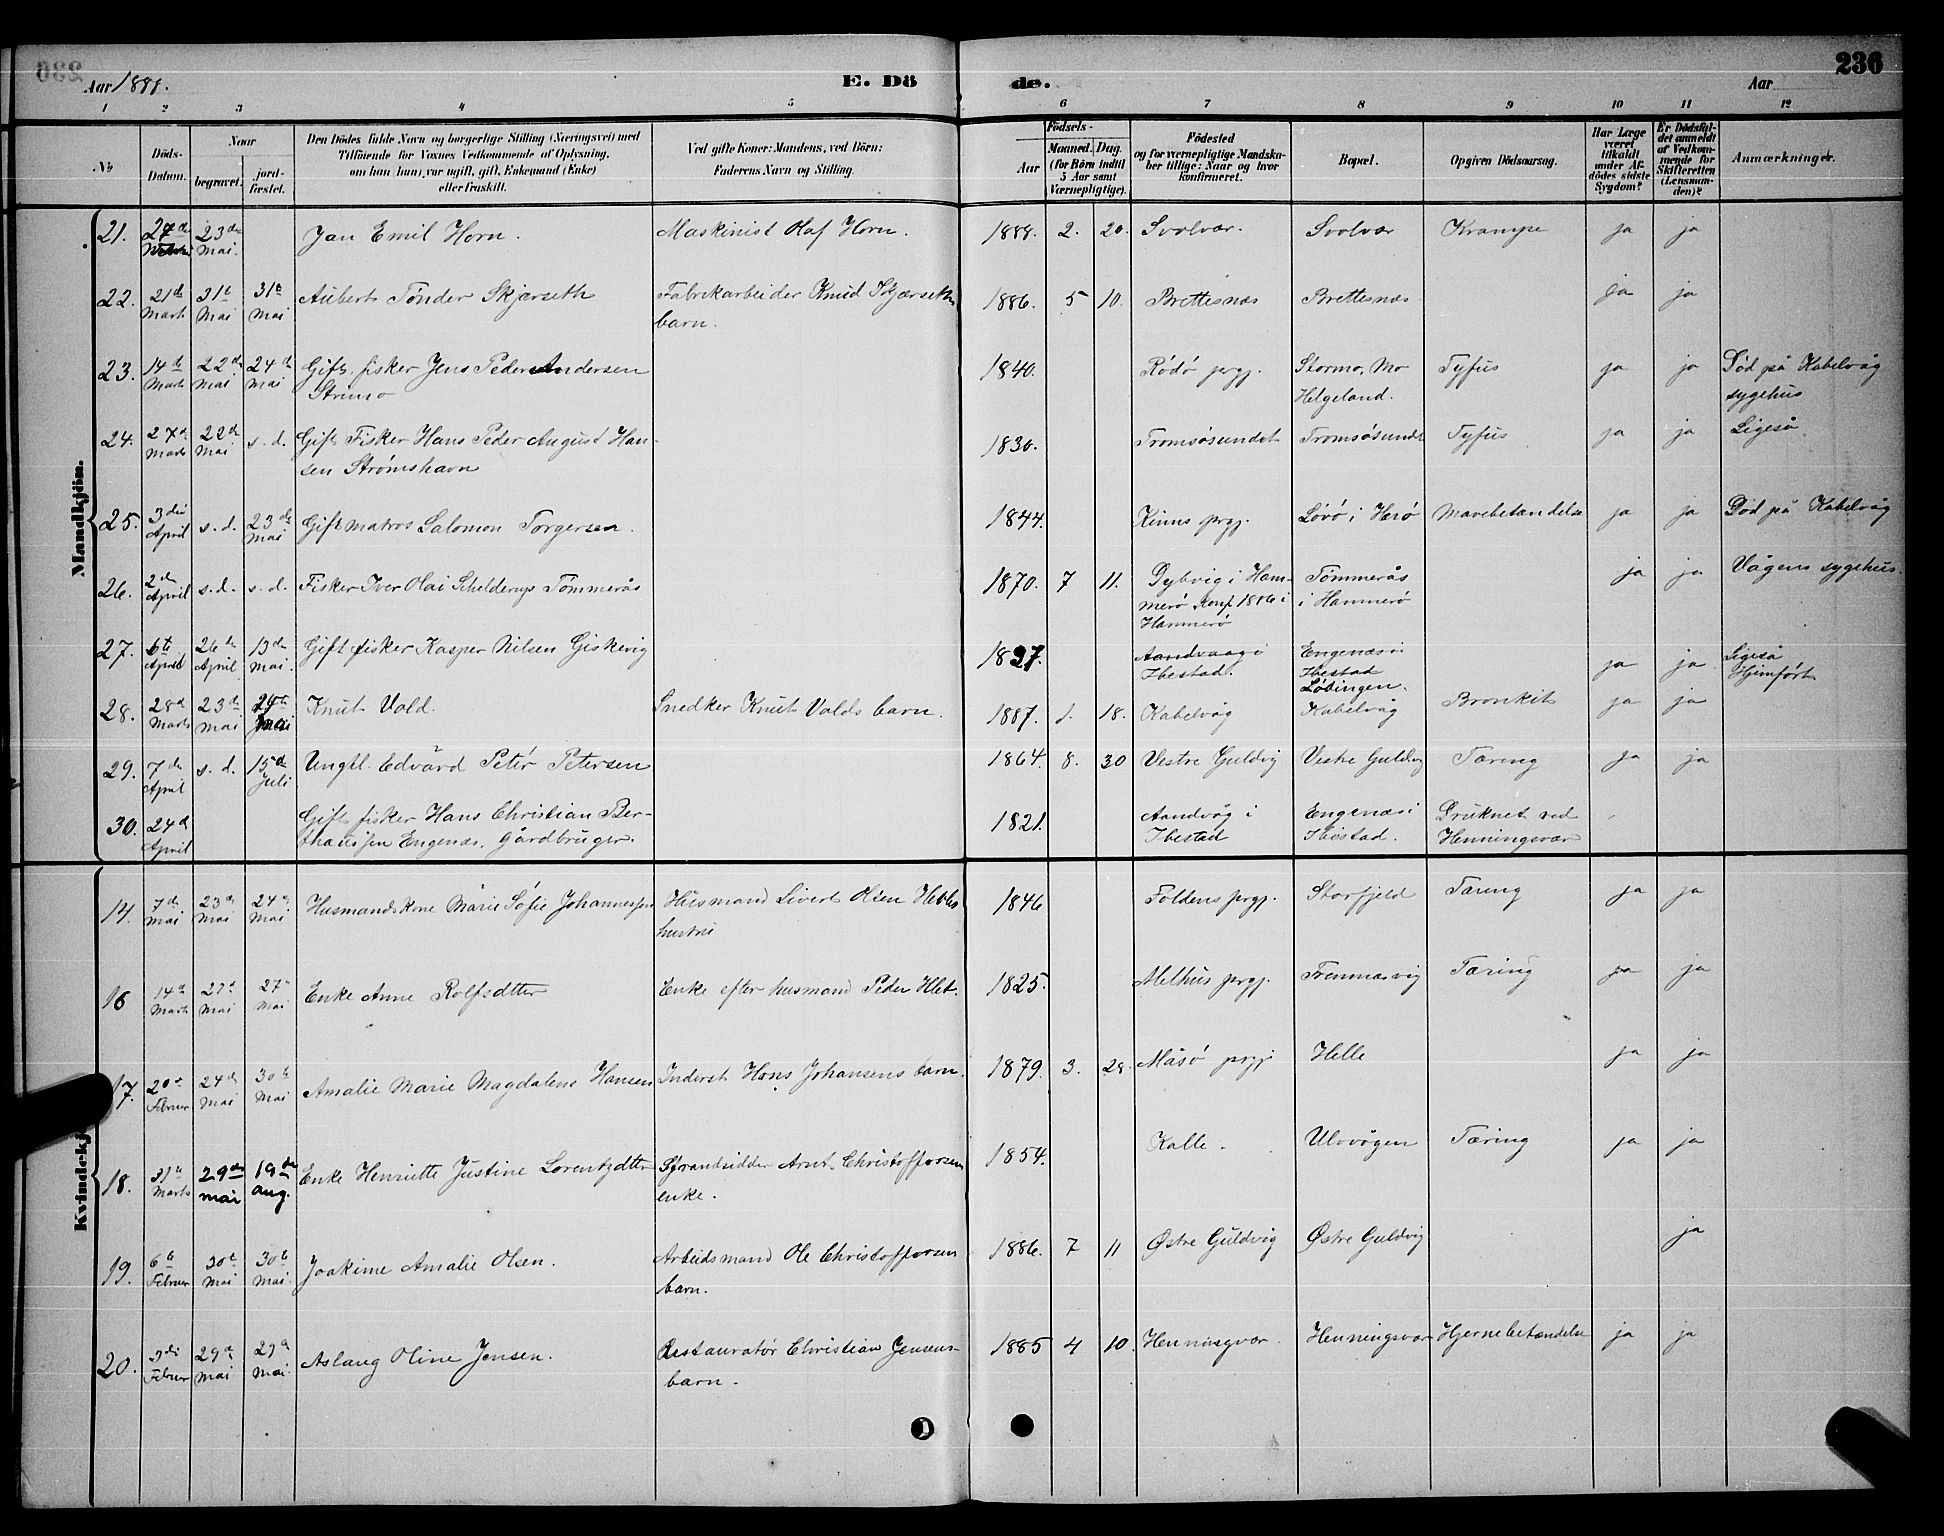 Aar 1888. E. Dö de. Aar 236
1 2 3 4 5 6 7 8 9 10 11 12
№
Döds-Datum.
Naar
begravet.
jordfæstet.
Den Dödes fulde Navn og borgerlige Stilling (Næringsvei) med
Tilföiende for Voxnes Vedkommende af Oplysning,
om han (hun) var ugift, gift, Enkemand (Enke)
eller fraskilt.
Ved gifte Koner: Mandens, ved Börn:
Faderens Navn og Stilling.
Födsels-
Aar
Maaned. Dag.
(for Börn indtil
5 Aar samt
Værnepligtige).
Födested
og for værnepligtige Mandska-
ber tillige: Naar og hvor
konfirmeret.
Bopæl.
Opgiven Dödsaarsag.
Har Læge
været
tilkaldt
under Af-
dödes sidste
Sygdom?
Er Dödsfal-
det anmeldt
af Vedkom-
mende for
Skifteretten
(Lensman-
den)?
Anmærkninger.
Mandkjön.
21. 23de Mai. Jan Emil Horn. Maskinist Olaf Horn. 1888. 2. 20. Svolvær. Svolvær Krampe ja ja
22. 21de Marts 31te Mai 31te Mai Aubert Tönder Skjærseth Fabrikarbeider Knud Skjærseths
barn. 1886. 5 10. Brettesnæs Brettesnæs ja ja
23. 14de Marts 22de Mai 24de Mai Gift fisker Jens Peder Andersen
Strimo 1840. Rödö prgj. Stormo, Mo
Helgeland. Tyfus ja ja Död på Kabelvåg
sygehus
24. 27de Marts 22de Mai s. d. Gift Fisker Hans Peder August Han-
sen Strömshavn 1830. Tromsösundet Tromsösundet Tyfus ja ja Ligeså
25. 3die April s. d. 23de Mai Gift matros Salomon Torgersen. 1844. Kinns prgj. Lövö i Herö Mavebetændelse ja ja Död på Kabelvåg
26. 2den April s. d. s. d. Fisker Iver Olai Schelderup Tömmerås 1870. 7 11. Dybvig i Ham-
merö Konf. 1886 i
Hammerö Tömmerås
i Hammerö ja ja Vågens sygehus.
27. 6te April 26de April 13de Mai. Gift fisker Kasper Nilsen Giskevig 1827. Aandvaag i
Ibestad. Engenæs i
Ibestad
Lödingen. ja ja Ligeså
Hjemfört
28. 28de Marts 23de Mai 24de Mai Knut Vold. Snedker Knut Volds barn. 1887. 1. 18. Kabelvåg Kabelvåg Bronkit ja ja
29. 7de April s. d. 15de Juli Ungkl. Edvard Petér Petersen 1864. 8. 30 Vestre Guldvig Vestre Guldvig Tæring ja ja
30. 24de April Gift fisker Hans Christian Ber-
theussen Engenæs. Gårdbruger. 1821. Aandvåg i
Ibestad Engenæs i
Ibestad. Druknet ved
Henningsvær
Kvindekj
14. 7de Mai 23de Mai 24de Mai Husmandskone Marie Sofie Johannessen Husmand Sivert Olsen
hustru 1846 Foldens prgj. Storfjeld Tæring ja ja
16 14de Marts 27de Mai 27de Mai Enke Anne Rolfsdtter Enke efter husmand Peder 1825. Melhus prgj. Tæring ja ja
17. 20de Februar 24de Mai 30te Mai Amalie Marie Magdalene Hansen Inderst Hans Johansens barn. 1879. 3. 28. Måsö prgj. Helle ja ja
18. 31te Marts 29de mai 19de aug. Enke Henriette Justine Lorentzdtter Strandsidder Arnt Christoffersen
enke. 1854. Kalle. Ulvvågen Tæring ja ja
19. 6te Februar 30te Mai 30te Mai Joakime Amalie Olsen. Arbeidsmand Ole Christoffersen
barn. 1886. 7 11 Østre Guldvig Østre Guldvig ja
20. 3die Februar 29de Mai 29de Mai. Aslaug Oline Jensen. Restauratör Christian Jensens
barn. 1885 4 10. Henningsvær. Henningsvær Hjernebetændelse ja ja